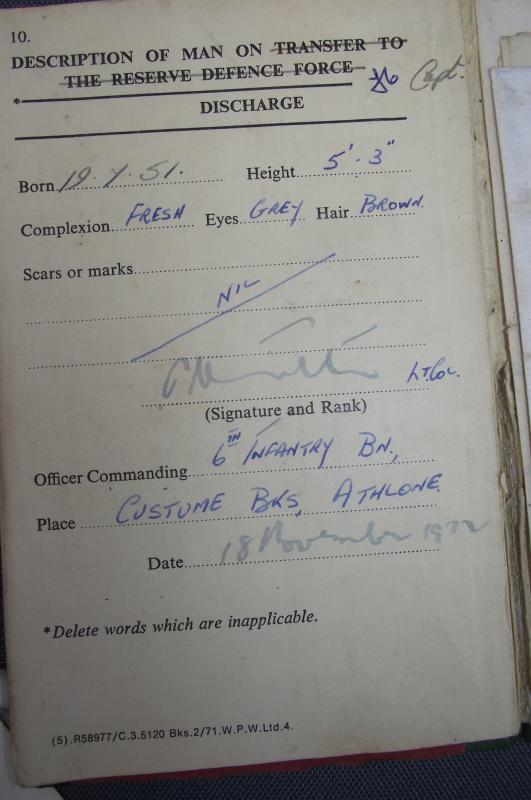 10.
DESCRIPTION OF MAN ON TRANSFER TO
THE RESERVE DEFENCE FORCE
Capt.
*
DISCHARGE
Born 19.7.51. Height 5'.3"
Complexion FRESH Eyes GREY Hair BROWN.
Scars or marks
NIL
Lt. Col.
(Signature and Rank)
Officer Commanding 6TH INFANTRY BN,
Place CUSTUME BKS, ATHLONE.
Date 18 November 1972
*Delete words which are inapplicable.
(5).R58977/C.3.5120 Bks.2/71.W.P.W.Ltd.4.